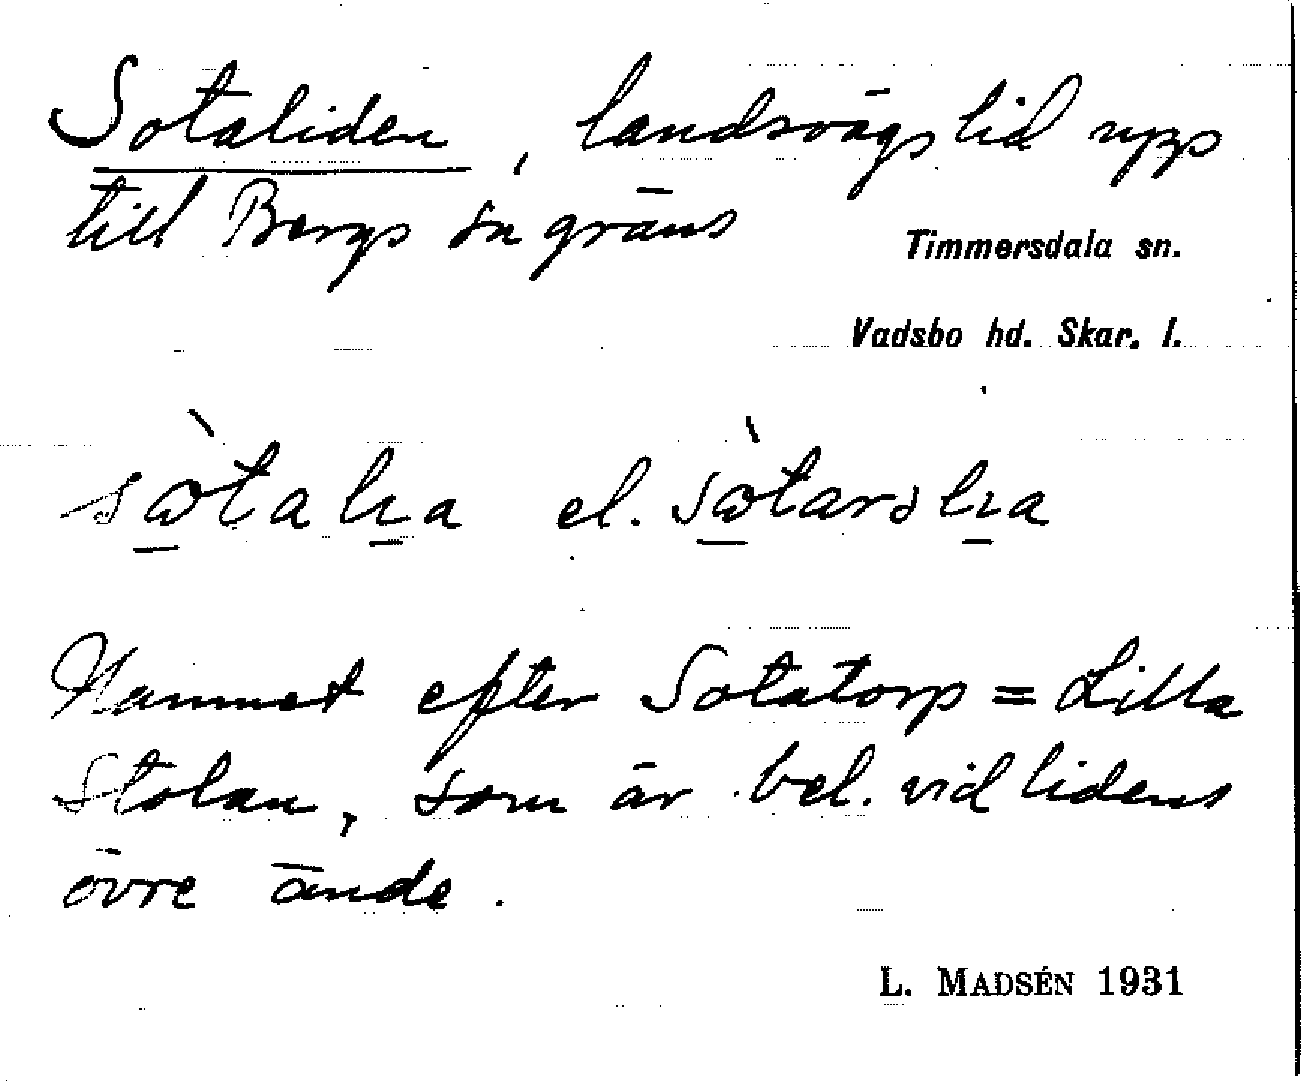 Sotaliden, landsvägslid upp
till Bergs sn gräns
Timmersdala sn.
Vadsbo hd. Skar. l.
el.
Namnet efter Sotatorp = Lilla
Stolan, som är bel. vid lidens
övre ände.
L. MADSÉN 1931